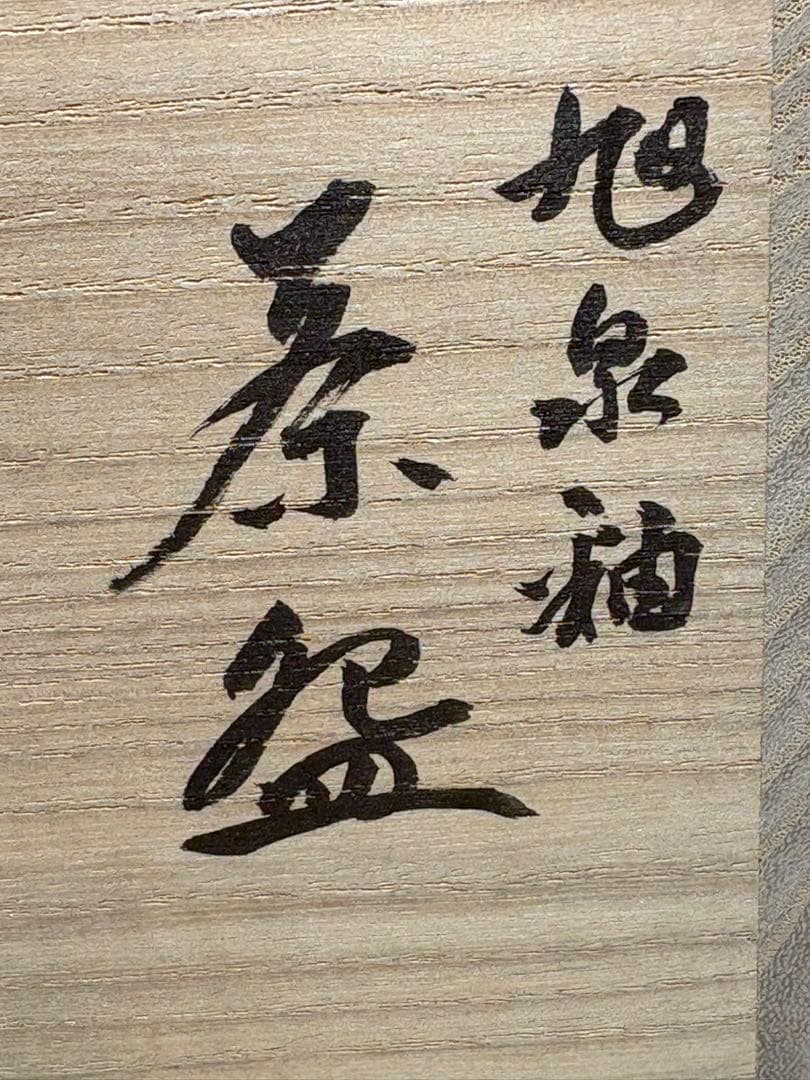 旭泉釉
茶盌